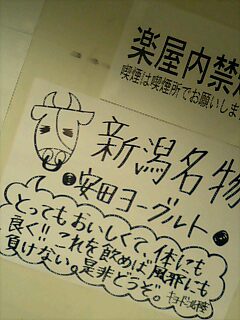 楽屋内禁
喫煙は喫煙所でお願いしま
新潟名物
安田ヨーグルト
とってもおいしくて 体にも
良く!! これを飲めば 風邪にも
負けない。是非どうぞ。